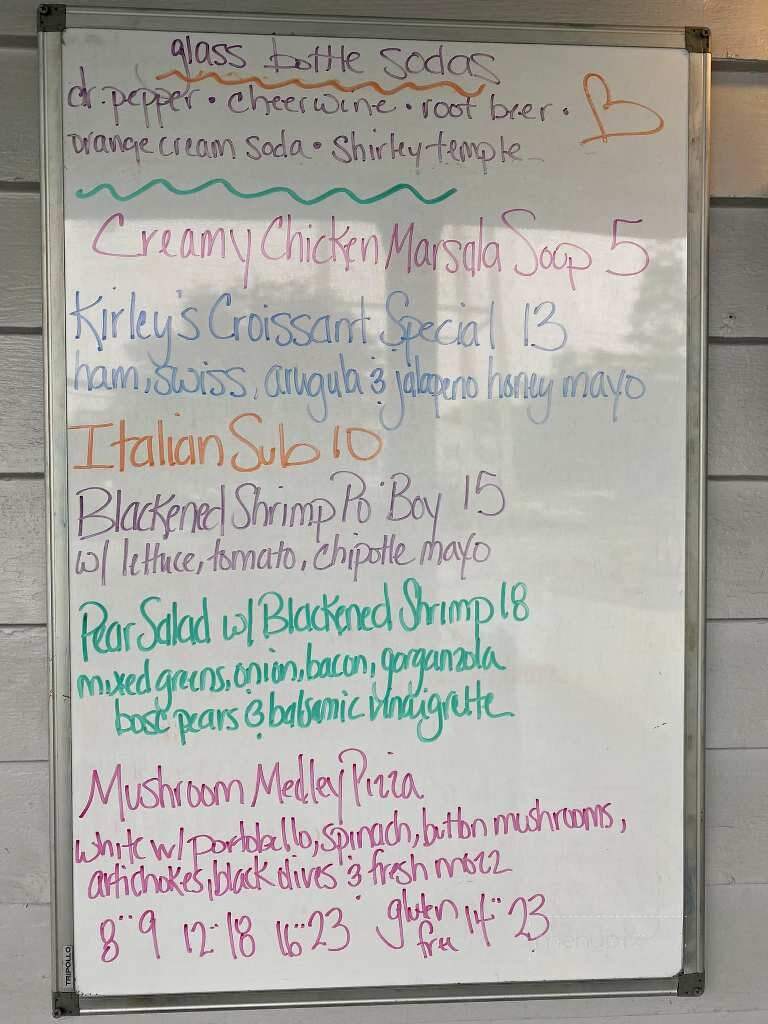 glass bottle sodas
dr. pepper • cheerwine • root beer •
orange cream soda • shirley temple
Creamy Chicken Marsala Soup 5
Kirley's Croissant Special 13
ham, swiss, arugula & jalapeno honey mayo
Italian Sub 10
Blackened Shrimp Po' Boy 15
w/ lettuce, tomato, chipotle mayo
Pear Salad w/ Blackened Shrimp 18
mixed greens, onion, bacon, gorganzola
bosc pears & balsamic vinaigrette
Mushroom Medley Pizza
white w/ portobello, spinach, button mushrooms,
artichokes, black olives & fresh mozz
8" 9 12" 18 16" 23 gluten free 14" 23
TRIPOLLO